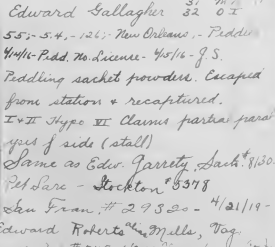 31 M
Edward Gallagher 32 O I
5.5;- 5.4,- 126;- New Orleans,- Peddler
4/14/16- Pedd. No. License- 4/15/16- J.S.
Peddling sachet powders. Escaped
from station & recaptured.
I & II Hypo VI Claims partial paral
ysis of side (stall)
Same as Edw. Garrety, Sacto.# 8130.
Pet Larc - Stockton # 5348
San Fran. # 29320 - 4/21/19 -
Edward Roberts alias Mills, Vag.